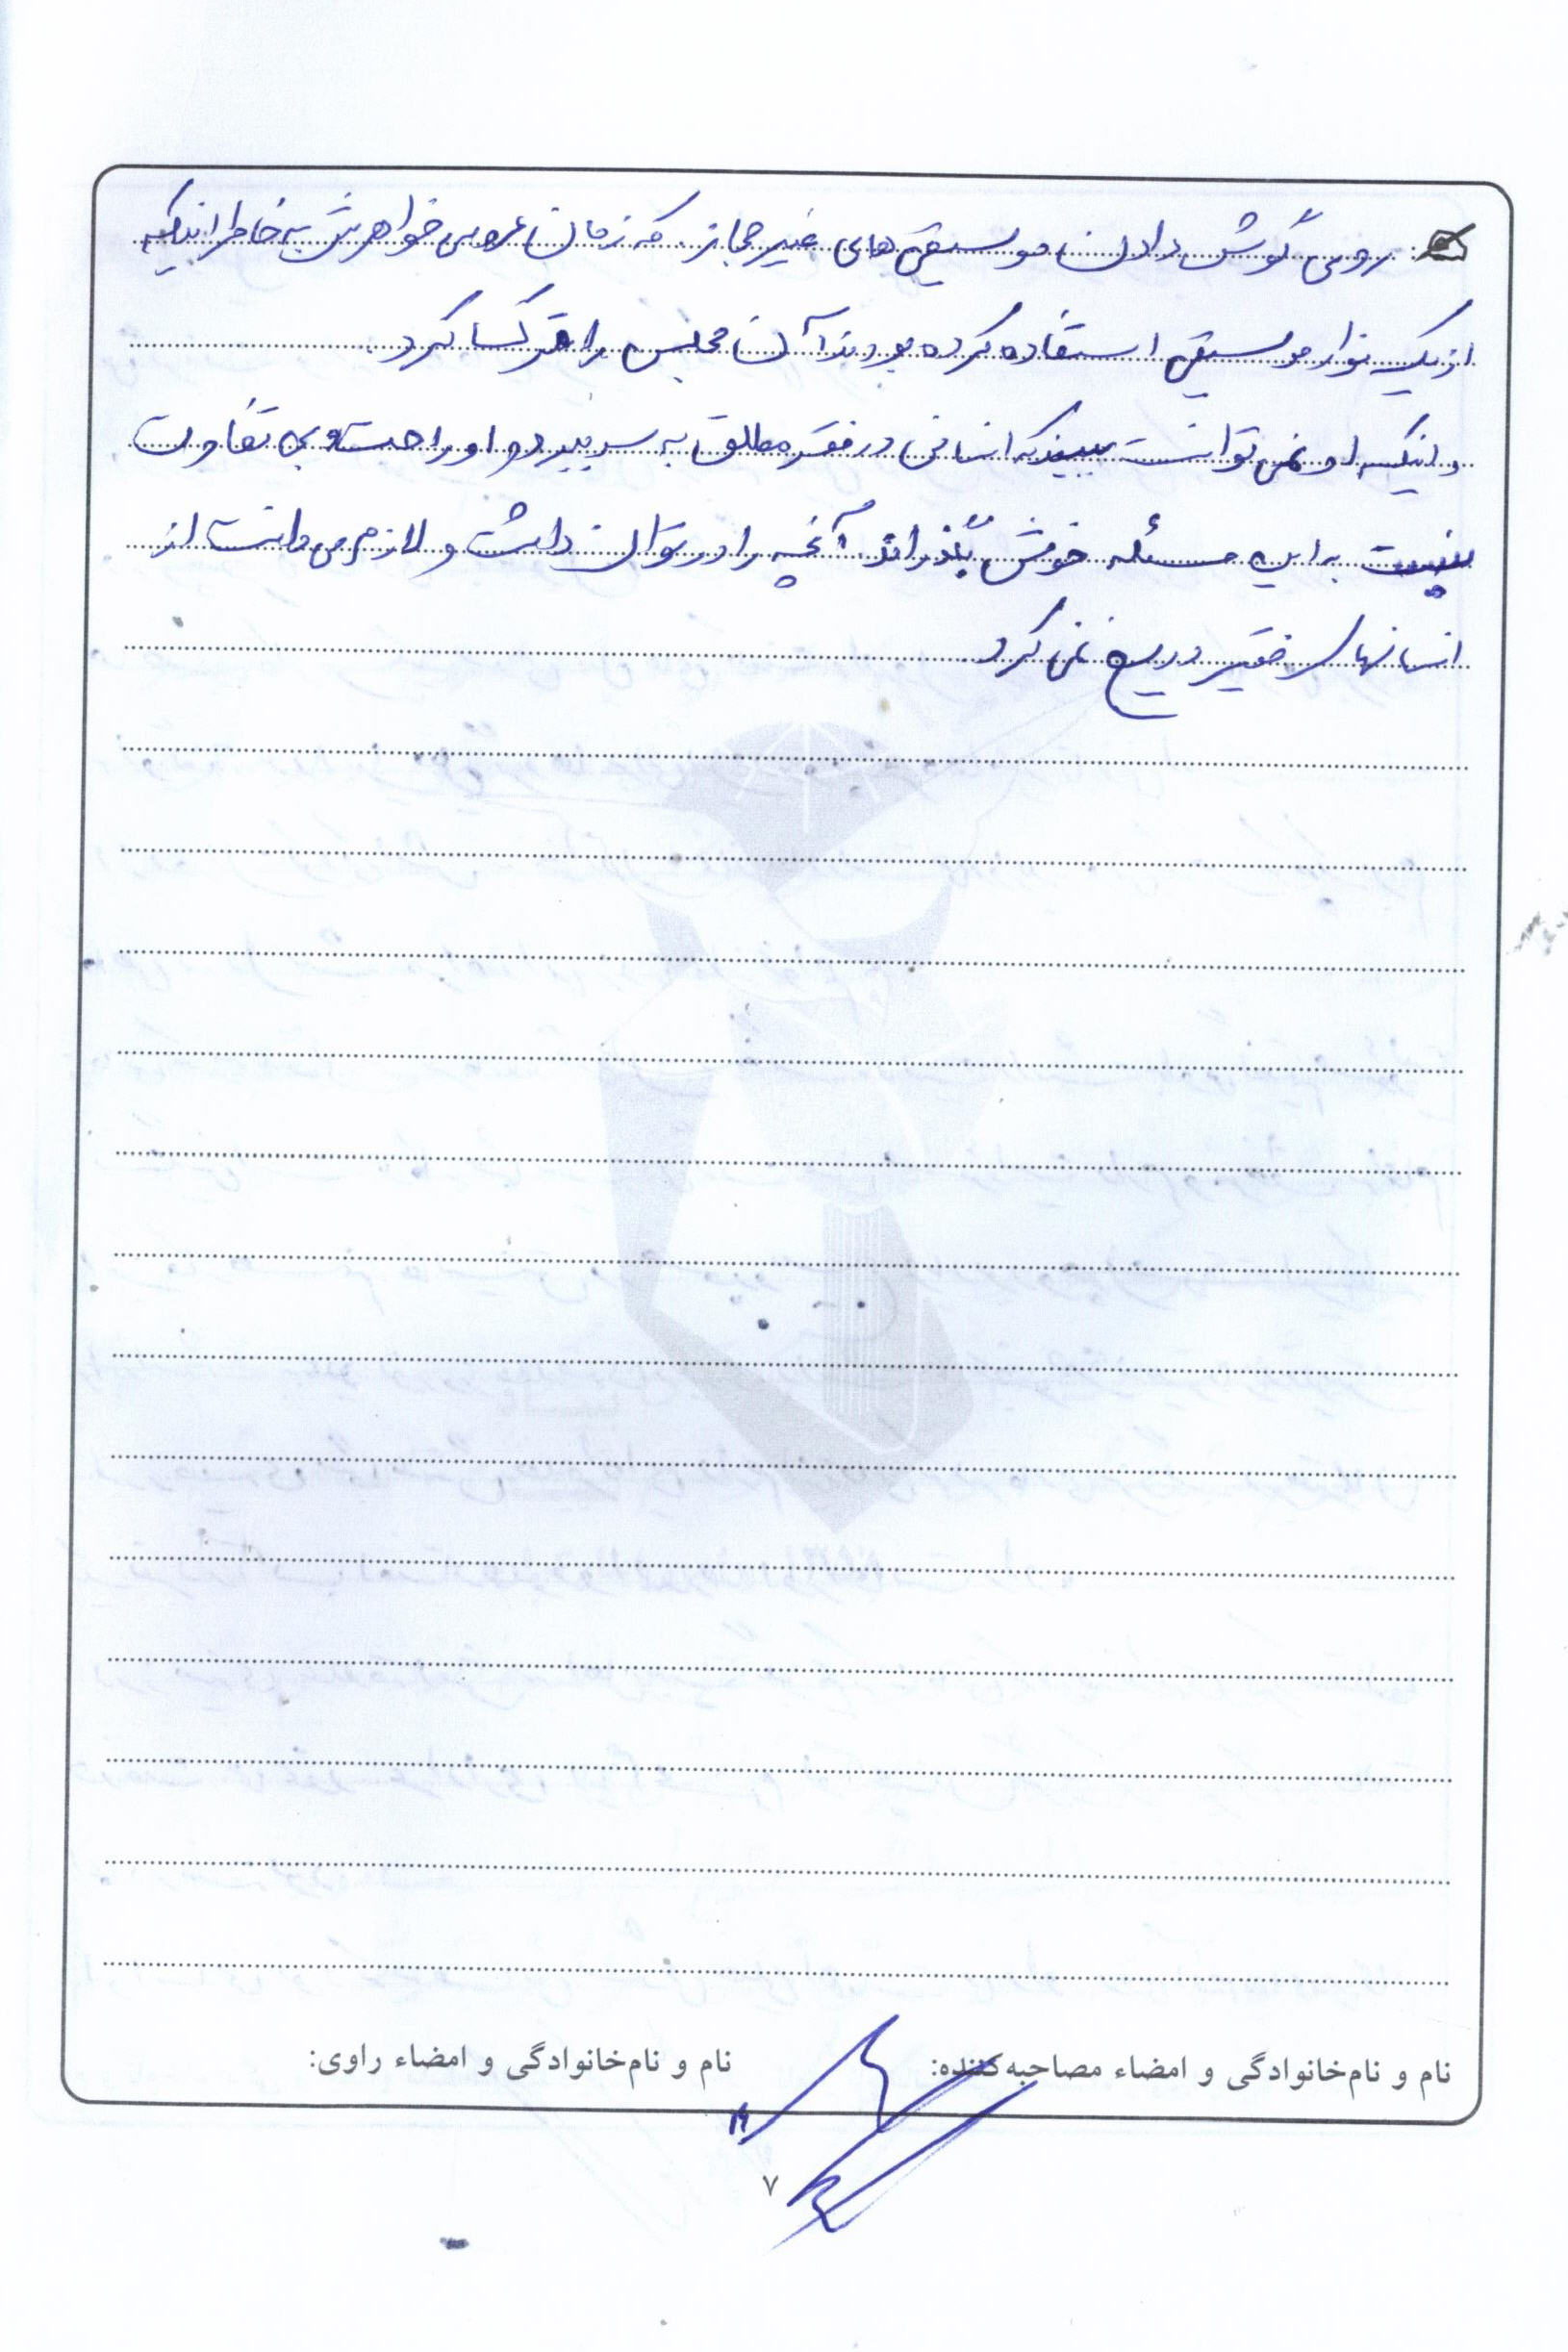 روی گوش دادن موسیقی های غیرمجاز. که زمان عروسی خواهرش به خاطر اینکه
از یک نوار موسیقی استفاده کرده بودند آن مجلس را ترک کرد.
و اینکه او نمی توانست ببیند که انسانی در فقر مطلق به سر ببرد و او راحت و بی تفاوت
نسبت به این مسئله خوش بگذراند. آنچه را در توان داشت و لازم می دانست از
انسانهای فقیر دریغ نمی کرد
نام و نام‌خانوادگی و امضاء مصاحبه‌کننده:
نام و نام‌خانوادگی و امضاء راوی:
۷